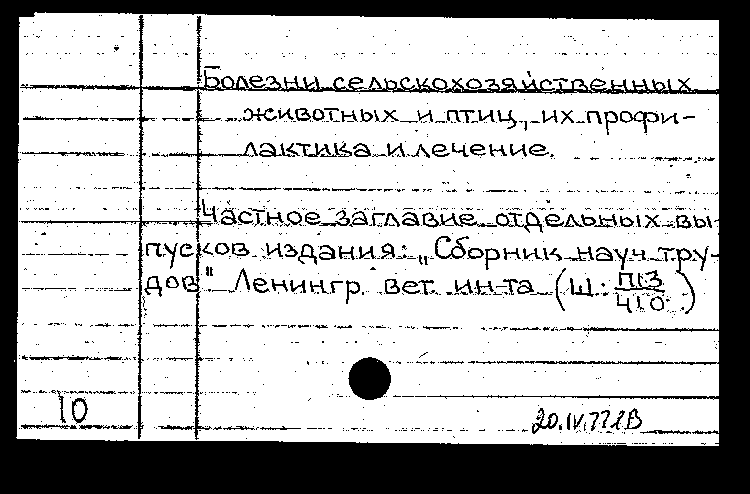 Болезни сельскохозяйственных
животных и птиц, их профи-
лактика и лечение.
Частное заглавие отдельных вы-
пусков издания: „Сборник науч. тру-
дов" Ленингр. вет. ин-та (Ш: П13/410)
10
20.IV.77